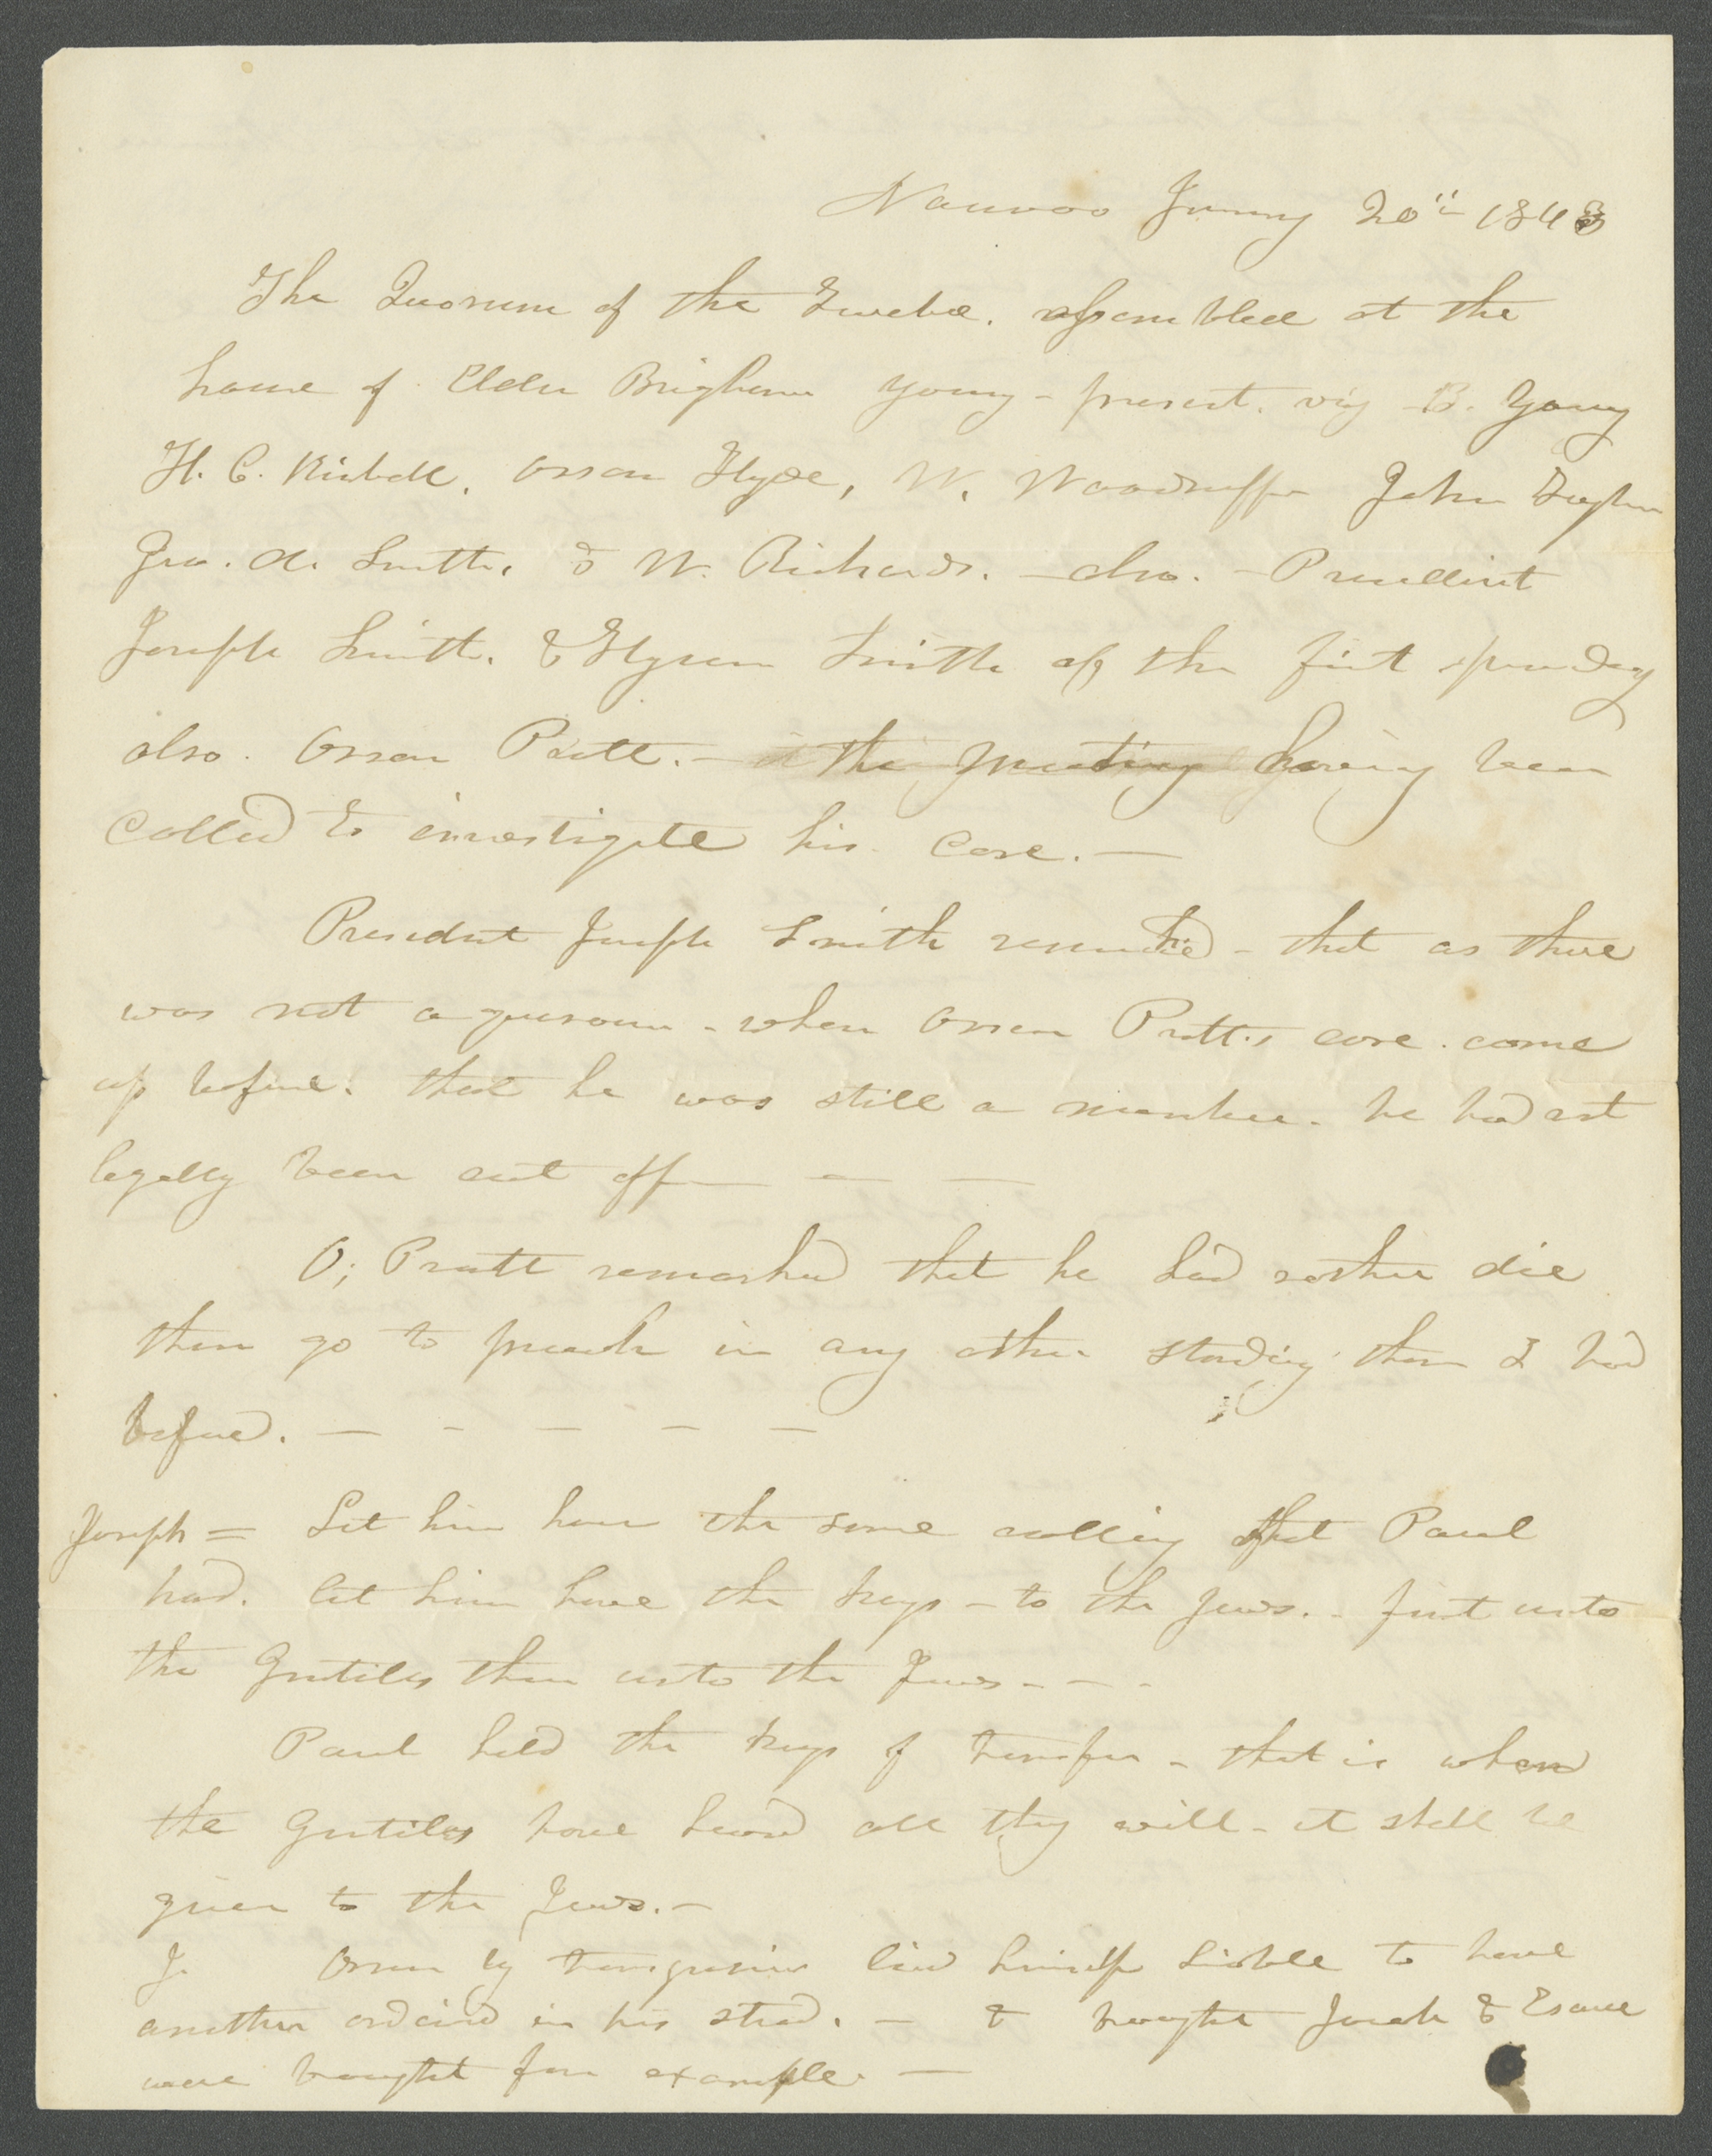 Nauvoo Jany 20th 1843
The Quorum of the Twelve. assembled at the
house of Elder Brigham Young - present. viz B. Young
H. C. Kimball. Orson Hyde, W. Woodruff John Taylor
Geo. A. Smith, & W. Richards. - also. - President
Joseph Smith. & Hyrum Smith of the first presidency
also. Orson Pratt. - the meeting having been
called to investigate his case. -
President Joseph Smith remarked - that as there
was not a quorum - when Orson Pratt's case. came
up before. that he was still a member - he had not
legally been cut off - - -
O; Pratt remarked that he had rather die
than go to preach in any other standing than I had
before. - - - - -
Joseph = Let him have the same calling that Paul
had. let him have the keys - to the Jews. - first unto
the Gentiles then unto the Jews - - -
Paul held the keys of transfer - that is when
the Gentiles have heard all they will - it shall be
given to the Jews. -
J. Orson by transgression laid himself liable to have
another ordained in his stead. - & brought Jacob & Esau
were brought for example. -